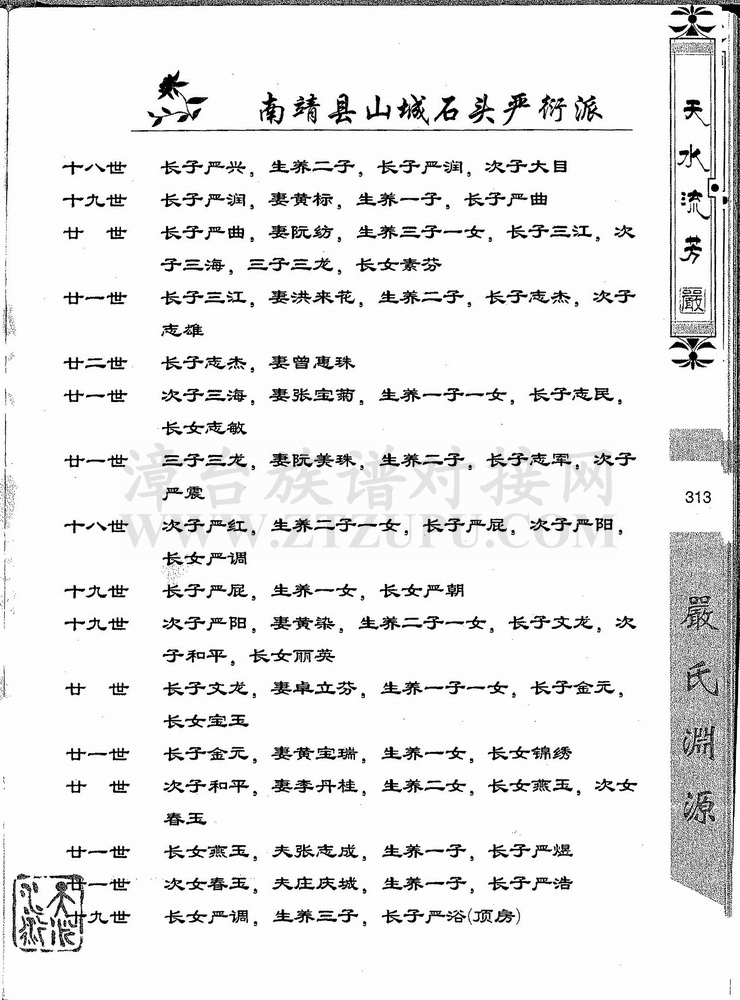 南靖县山城石头严衍派
十八世 长子严兴，生养二子，长子严润，次子大目
十九世 长子严润，妻黄标，生养一子，长子严曲
廿 世 长子严曲，妻阮纺，生养三子一女，长子三江，次
子三海，三子三龙，长女素芬
廿一世 长子三江，妻洪来花，生养二子，长子志杰，次子
志雄
廿二世 长子志杰，妻曾惠珠
廿一世 次子三海，妻张宝菊，生养一子一女，长子志民，
长女志敏
廿一世 三子三龙，妻阮美珠，生养二子，长子志军，次子
严震
十八世 次子严红，生养二子一女，长子严屁，次子严阳，
长女严调
十九世 长子严屁，生养一女，长女严朝
十九世 次子严阳，妻黄染，生养二子一女，长子文龙，次
子和平，长女丽英
廿 世 长子文龙，妻卓立芬，生养一子一女，长子金元，
长女宝玉
廿一世 长子金元，妻黄宝瑞，生养一女，长女锦绣
廿 世 次子和平，妻李丹桂，生养二女，长女燕玉，次女
春玉
廿一世 长女燕玉，夫张志成，生养一子，长子严煜
廿一世 次女春玉，夫庄庆城，生养一子，长子严浩
十九世 长女严调，生养三子，长子严浴(顶房)
天水流芳
嚴
313
嚴氏淵源
漳台族谱对接网
WWW.ZTZUPU.COM